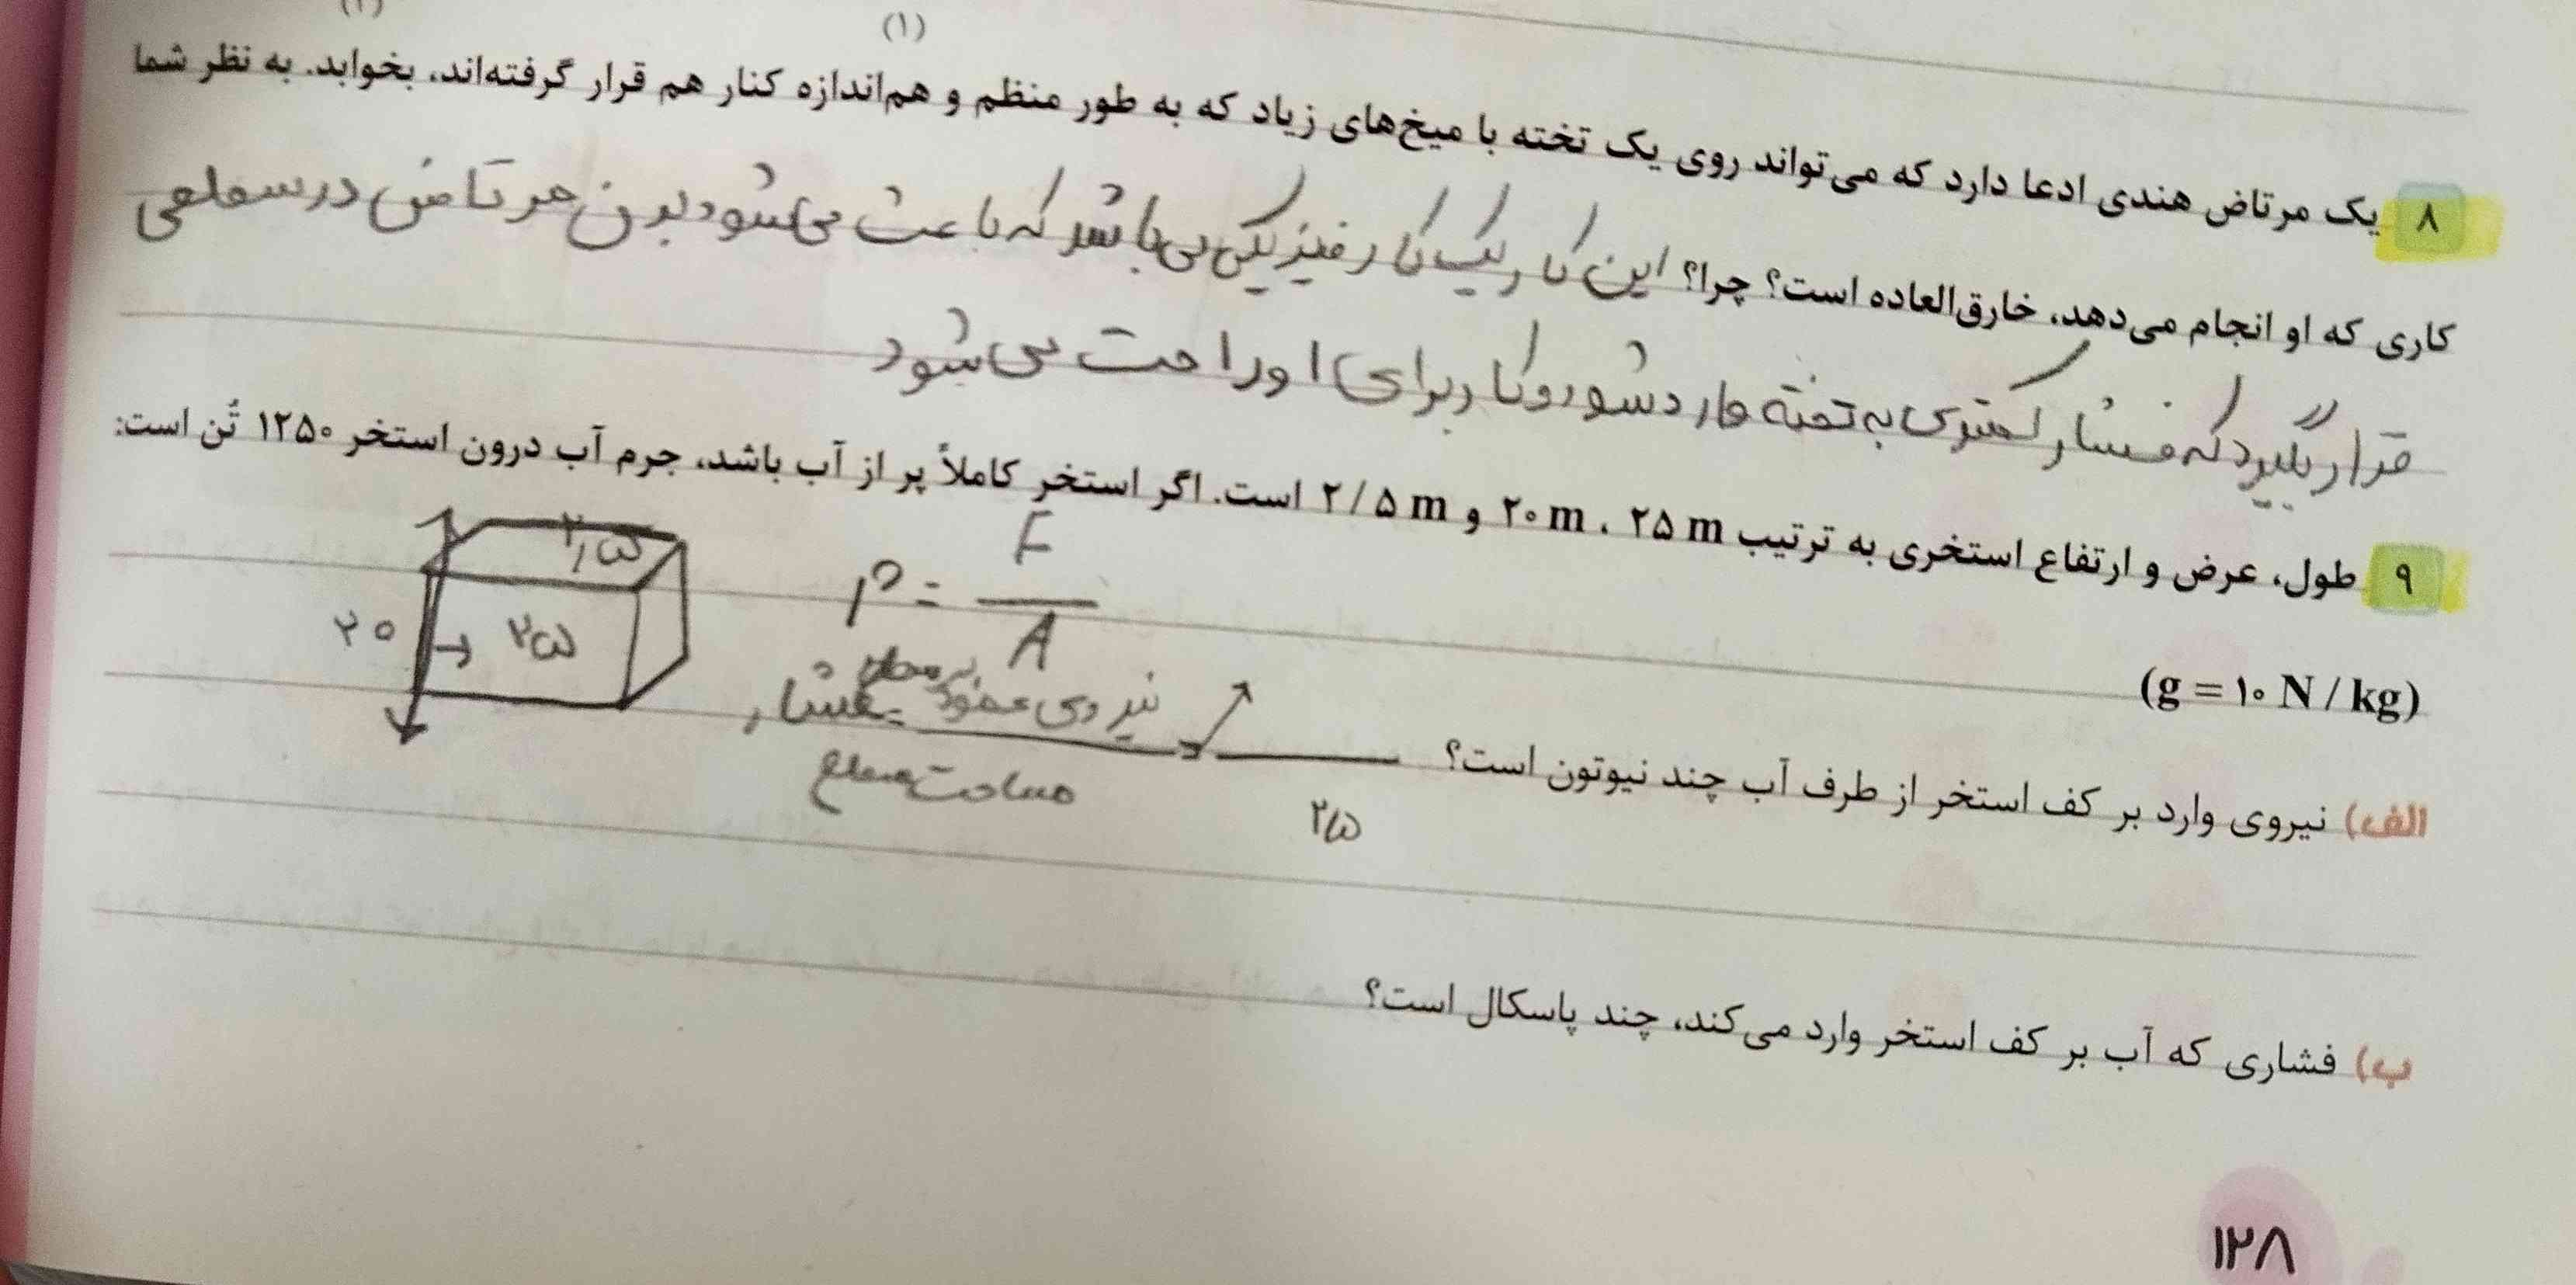 (۱)
(۲)
۸ یک مرتاض هندی ادعا دارد که می‌تواند روی یک تخته با میخ‌های زیاد که به طور منظم و هم‌اندازه کنار هم قرار گرفته‌اند، بخوابد. به نظر شما
کاری که او انجام می‌دهد، خارق‌العاده است؟ چرا؟ این کار یک کار فیزیکی می باشد که باعث می شود بدن مرتاض در سطحی
قرار بگیرد که فشار کمتری به تخته وارد شود و کار برای او راحت می شود
۹ طول، عرض و ارتفاع استخری به ترتیب ۲۵ m ، ۲۰ m و ۲/۵ m است. اگر استخر کاملاً پر از آب باشد، جرم آب درون استخر ۱۲۵۰ تُن است:
(g = ۱۰ N / kg)
P = F / A
۲/۵
۲۰
۲۵
الف) نیروی وارد بر کف استخر از طرف آب چند نیوتون است؟
نیروی عمود بر سطح = فشار
مساحت سطح
۲۵
ب) فشاری که آب بر کف استخر وارد می‌کند، چند پاسکال است؟
۱۲۸